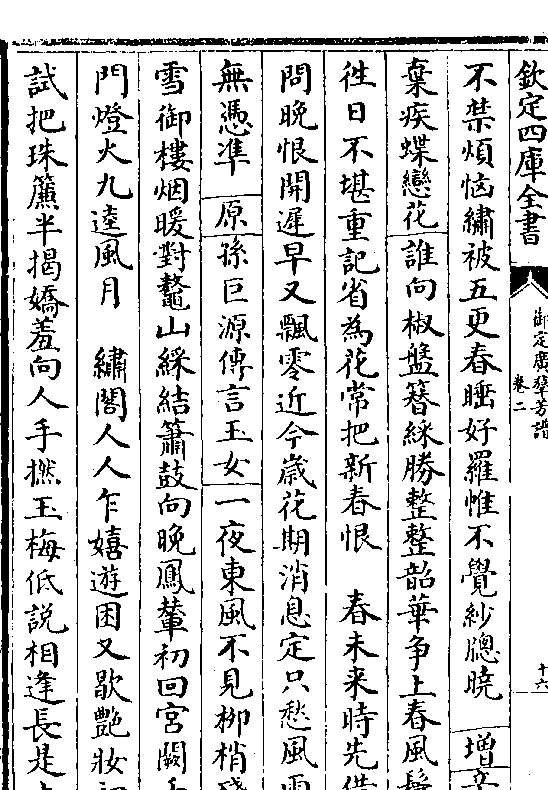 欽定四庫全書
御定廣羣芳譜
卷二
十六
不禁煩惱繡被五更春睡好羅帷不覺紗牕曉 增辛
棄疾蝶戀花誰向椒盤簪綵勝整整韶華爭上春風鬢
徃日不堪重記省為花常把新春恨 春未来時先借
問晚恨開遲早又飄零近今歳花期消息定只愁風雨
無憑準 原孫巨源傳言玉女一夜東風不見柳梢殘
雪御樓烟暖對鼇山綵結簫鼓向晚鳳輦初回宮闕千
門燈火九逵風月 繡閣人人乍嬉遊困又歇艶妝初
試把珠簾半揭嬌羞向人手撚玉梅低説相逢長是